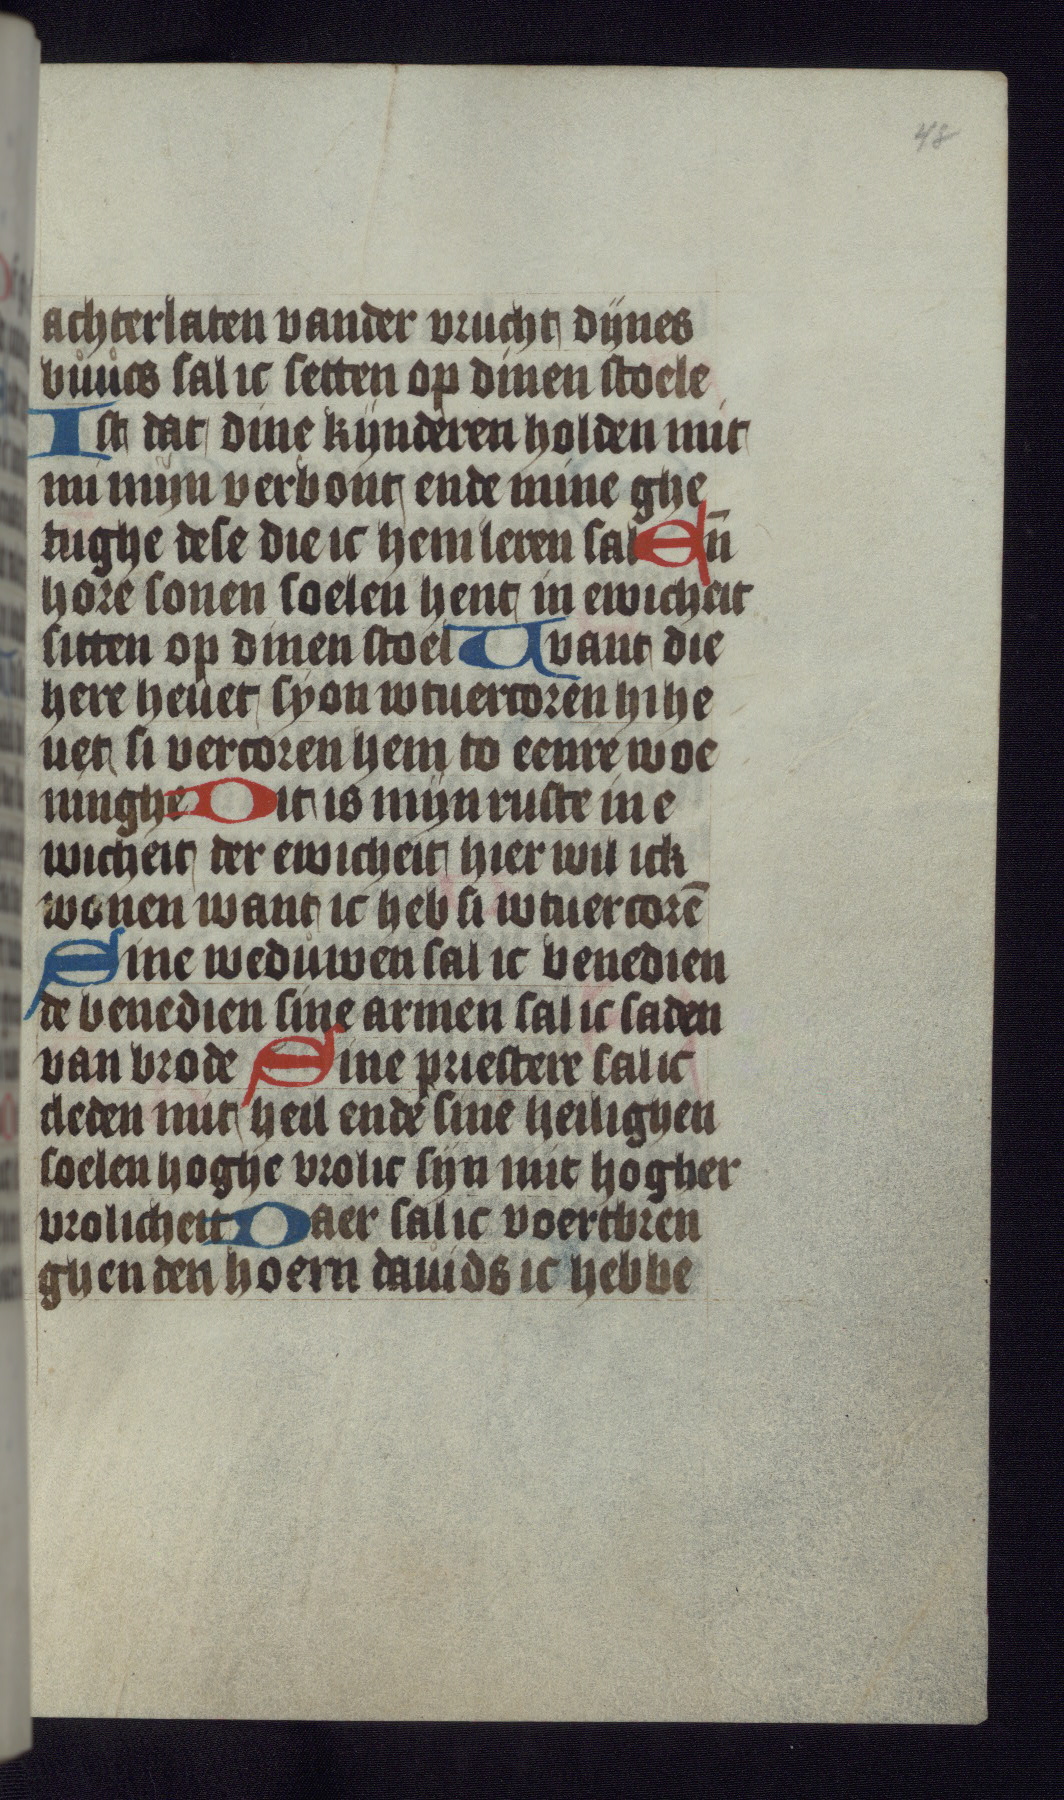 48
achterlaten vander vrucht dÿnes
bůůcs sal ic setten op dinen stoele
Ist dat dine kÿnderen holden mit
mi mÿn verbont ende mine ghe
tughe dese die ic hem leren sal En̄
hore sonen soelen hent in ewicheit
sitten op dinen stoel Want die
here heuet sÿon wtuercoren hi he
uet si vercoren hem to eenre woe
ninghe Dit is mÿn ruste in e
wicheit der ewicheit hier wil ick
wonen want ic heb si wtuercorē
Sine wedůwen sal ic benedien
de benedien sine armen sal ic saden
van brode Sine priestere sal ic
cleden mit heil ende sine heilighen
soelen hoghe vrolic sÿn mit hogher
vrolicheit Daer sal ic voertbren
ghen den hoern dauids ic hebbe